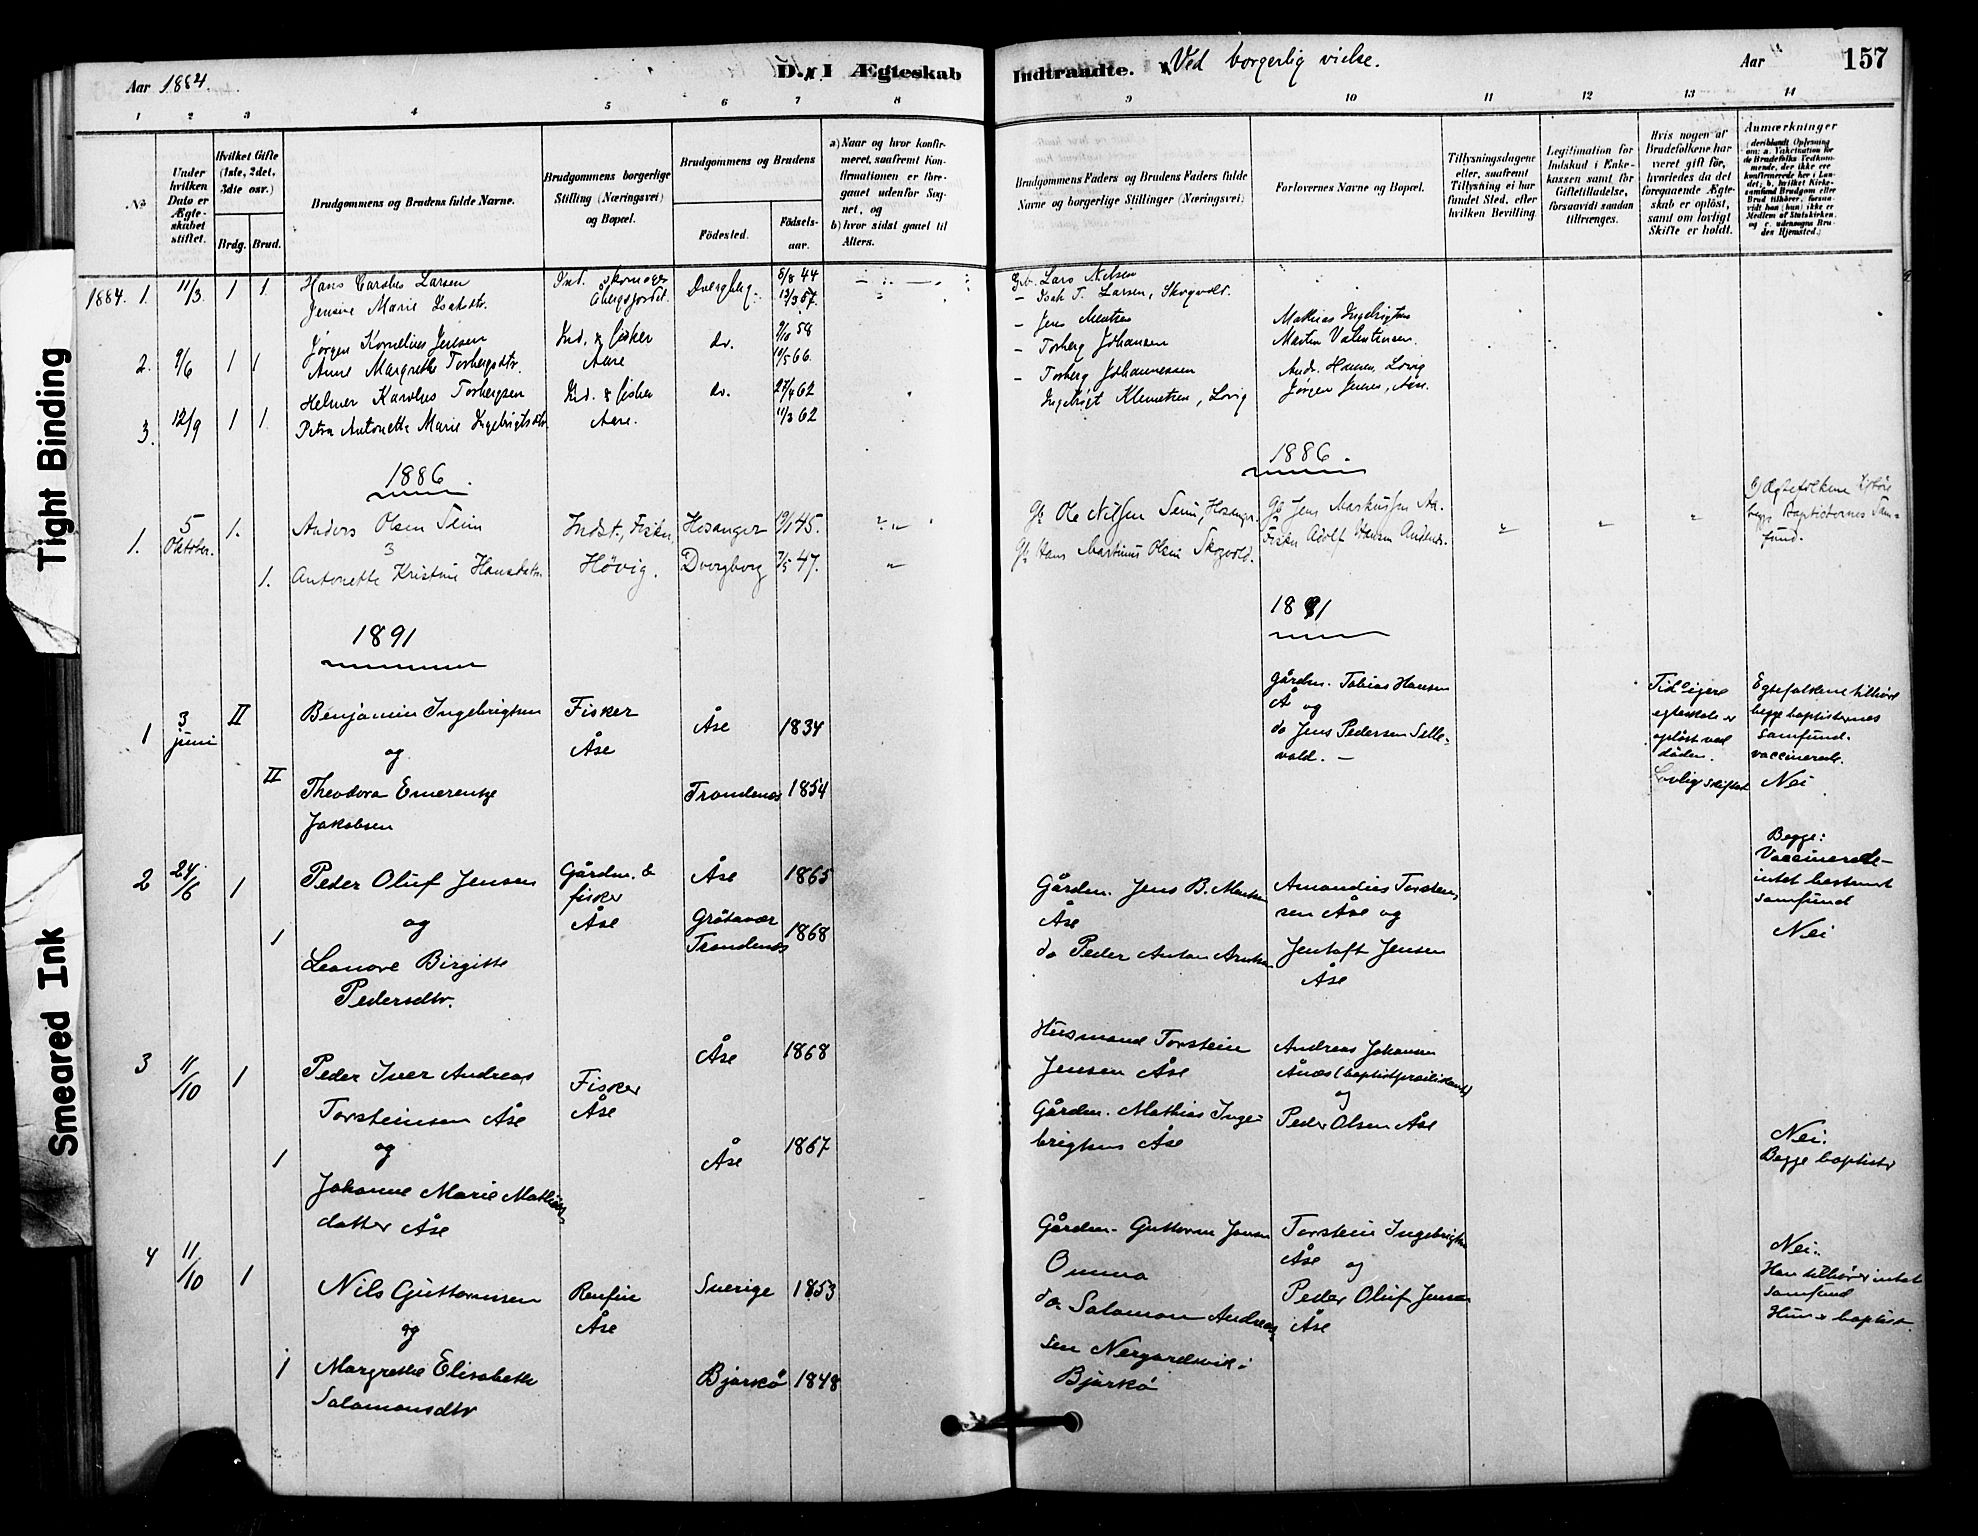 Aar 1884.
D. I Ægteskab
Indtraadte. Ved borgerlig vielse.
Aar
157
1 2 3 4 5 6 7 8 9 10 11 12 13 14
No
Under hvilken Dato er Ægteskabet stiftet.
Hvilket Gifte (1ste, 2det, 3die osv.)
Brdg. Brud.
Brudgommens og Brudens fulde Navne.
Brudgommens borgerlige Stilling (Næringsvei) og Bopæl.
Brudgommens og Brudens
Fødested.
Fødsels-aar.
a) Naar og hvor konfirmeret, saafremt Konfirmationen er foregaaet udenfor Sognet, og
b) hvor sidst gaaet til Alters.
Brudgommens Faders og Brudens Faders fulde Navne og borgerlige Stillinger (Næringsvei)
Forlovernes Navne og Bopæl.
Tillysningsdagene eller, saafremt Tillysning ei har fundet Sted, efter hvilken Bevilling.
Legitimation for Indskud i Enkekassen samt for Giftetilladelse, forsaavidt saadan tiltrænges.
Hvis nogen af Brudefolkene har været gift før, hvorledes da det foregaaende Ægteskab er opløst, samt om lovligt Skifte er holdt.
Anmærkninger
1884. 1. 11/3 1 1
Hans Carolus Larsen
Jensine Marie Isaksdtr.
Ind.
Dvergberg.
5/8 44
13/3 57.
Lars Nilsen
Isak T. Larsen, Skogvold.
2. 9/6 1 1
Jørgen Kornelius Jensen
Anne Margrethe Torbergsdtr.
Ind. & fisker
Aase
do.
9/10 58
19/5 66.
Jens
Torberg Johansen
Mathias Ingebrigtsen
Martin Valentinsen.
3. 12/9 1 1.
Helmer Karolus Torbergsen
Petra Antonette Marie Ingebrigtsdtr
Ind. & fisker
Aase.
do.
27/4 62
11/3 62
Torberg Johannessen
Ingebrigt Klemetsen, Lovig
Andr. Hansen, Lovig
Jørgen Jensen, Aase.
1886.
1886.
1. 5 Oktober. 1.
Anders Olsen Seim
Indst., Fisker,
Hosanger
19/1 45.
Gb Ole Nilsen Seim, Hosanger.
Gb Jens Markussen Aa.
b) Ægtefolkene tilhøre
begge Baptisternes Sam-
fund.
1. Antonette Kristine Hansdatter
Høvig.
Dvergberg
7/5 47.
Gb Hans Martinus Olsen Skogvold.
Fisker Adolf Hansen Andenes.
1891
1891
1 3 juni II
Benjamin Ingebrigtsen
og
II
Theodora Emerentze
Jakobsen
Fisker
Åse
Åse 1834
Trondenæs 1854
Gårdm. Tobias Hansen
Å og
do Jens Pedersen Selle-
vold. –
Tidligere
egteskab er
opløst ved
døden.
Lovlig skiftet
Egtefolkene tilhøre
begge baptisternes
samfund.
vaccinerede.
Nei
2 24/6 1
Peder Oluf Jensen
og
1
Leonore Birgitte
Pedersdtr.
Gårdm. &
fisker
Åse
Åse 1865
Grøtavær
Trondenæs 1868
Gårdm. Jens B. Mentsen
Åse
do Peder Anton Arntsen
Amandus Torstein-
sen Åse og
Jentoft Jensen
Åse
Begge:
Vaccinerede –
intet bestemt
samfund
Nei
3 11/10 1
Peder Iver Andreas
Torsteinsen Åse
og
1
Johanne Marie Mathias
datter Åse
Fisker
Åse
Åse 1868
Åse 1867
Husmand Torstein
Jensen Åse
Gårdm. Mathias Inge-
brigtsen Åse
Andreas Johansen
Ånæs
og
Peder Olsen Åse
Nei.
Begge baptister
4 11/10 1
Nils Guttormsen
og
1
Margrethe Elisabeth
Salamonsdtr
Åse
Sverige 1853
Bjarkø 1848
Gårdm. Guttorm Jonsen
Omma
do. Salamon Andreas-
sen Nergårdsvik i
Bjarkø
Torstein Ingebrigtsen
Åse og
Peder Oluf Jensen
Åse
Nei.
Han tilhører intet
samfund
Hun er baptist.
Tight Binding
Smeared Ink